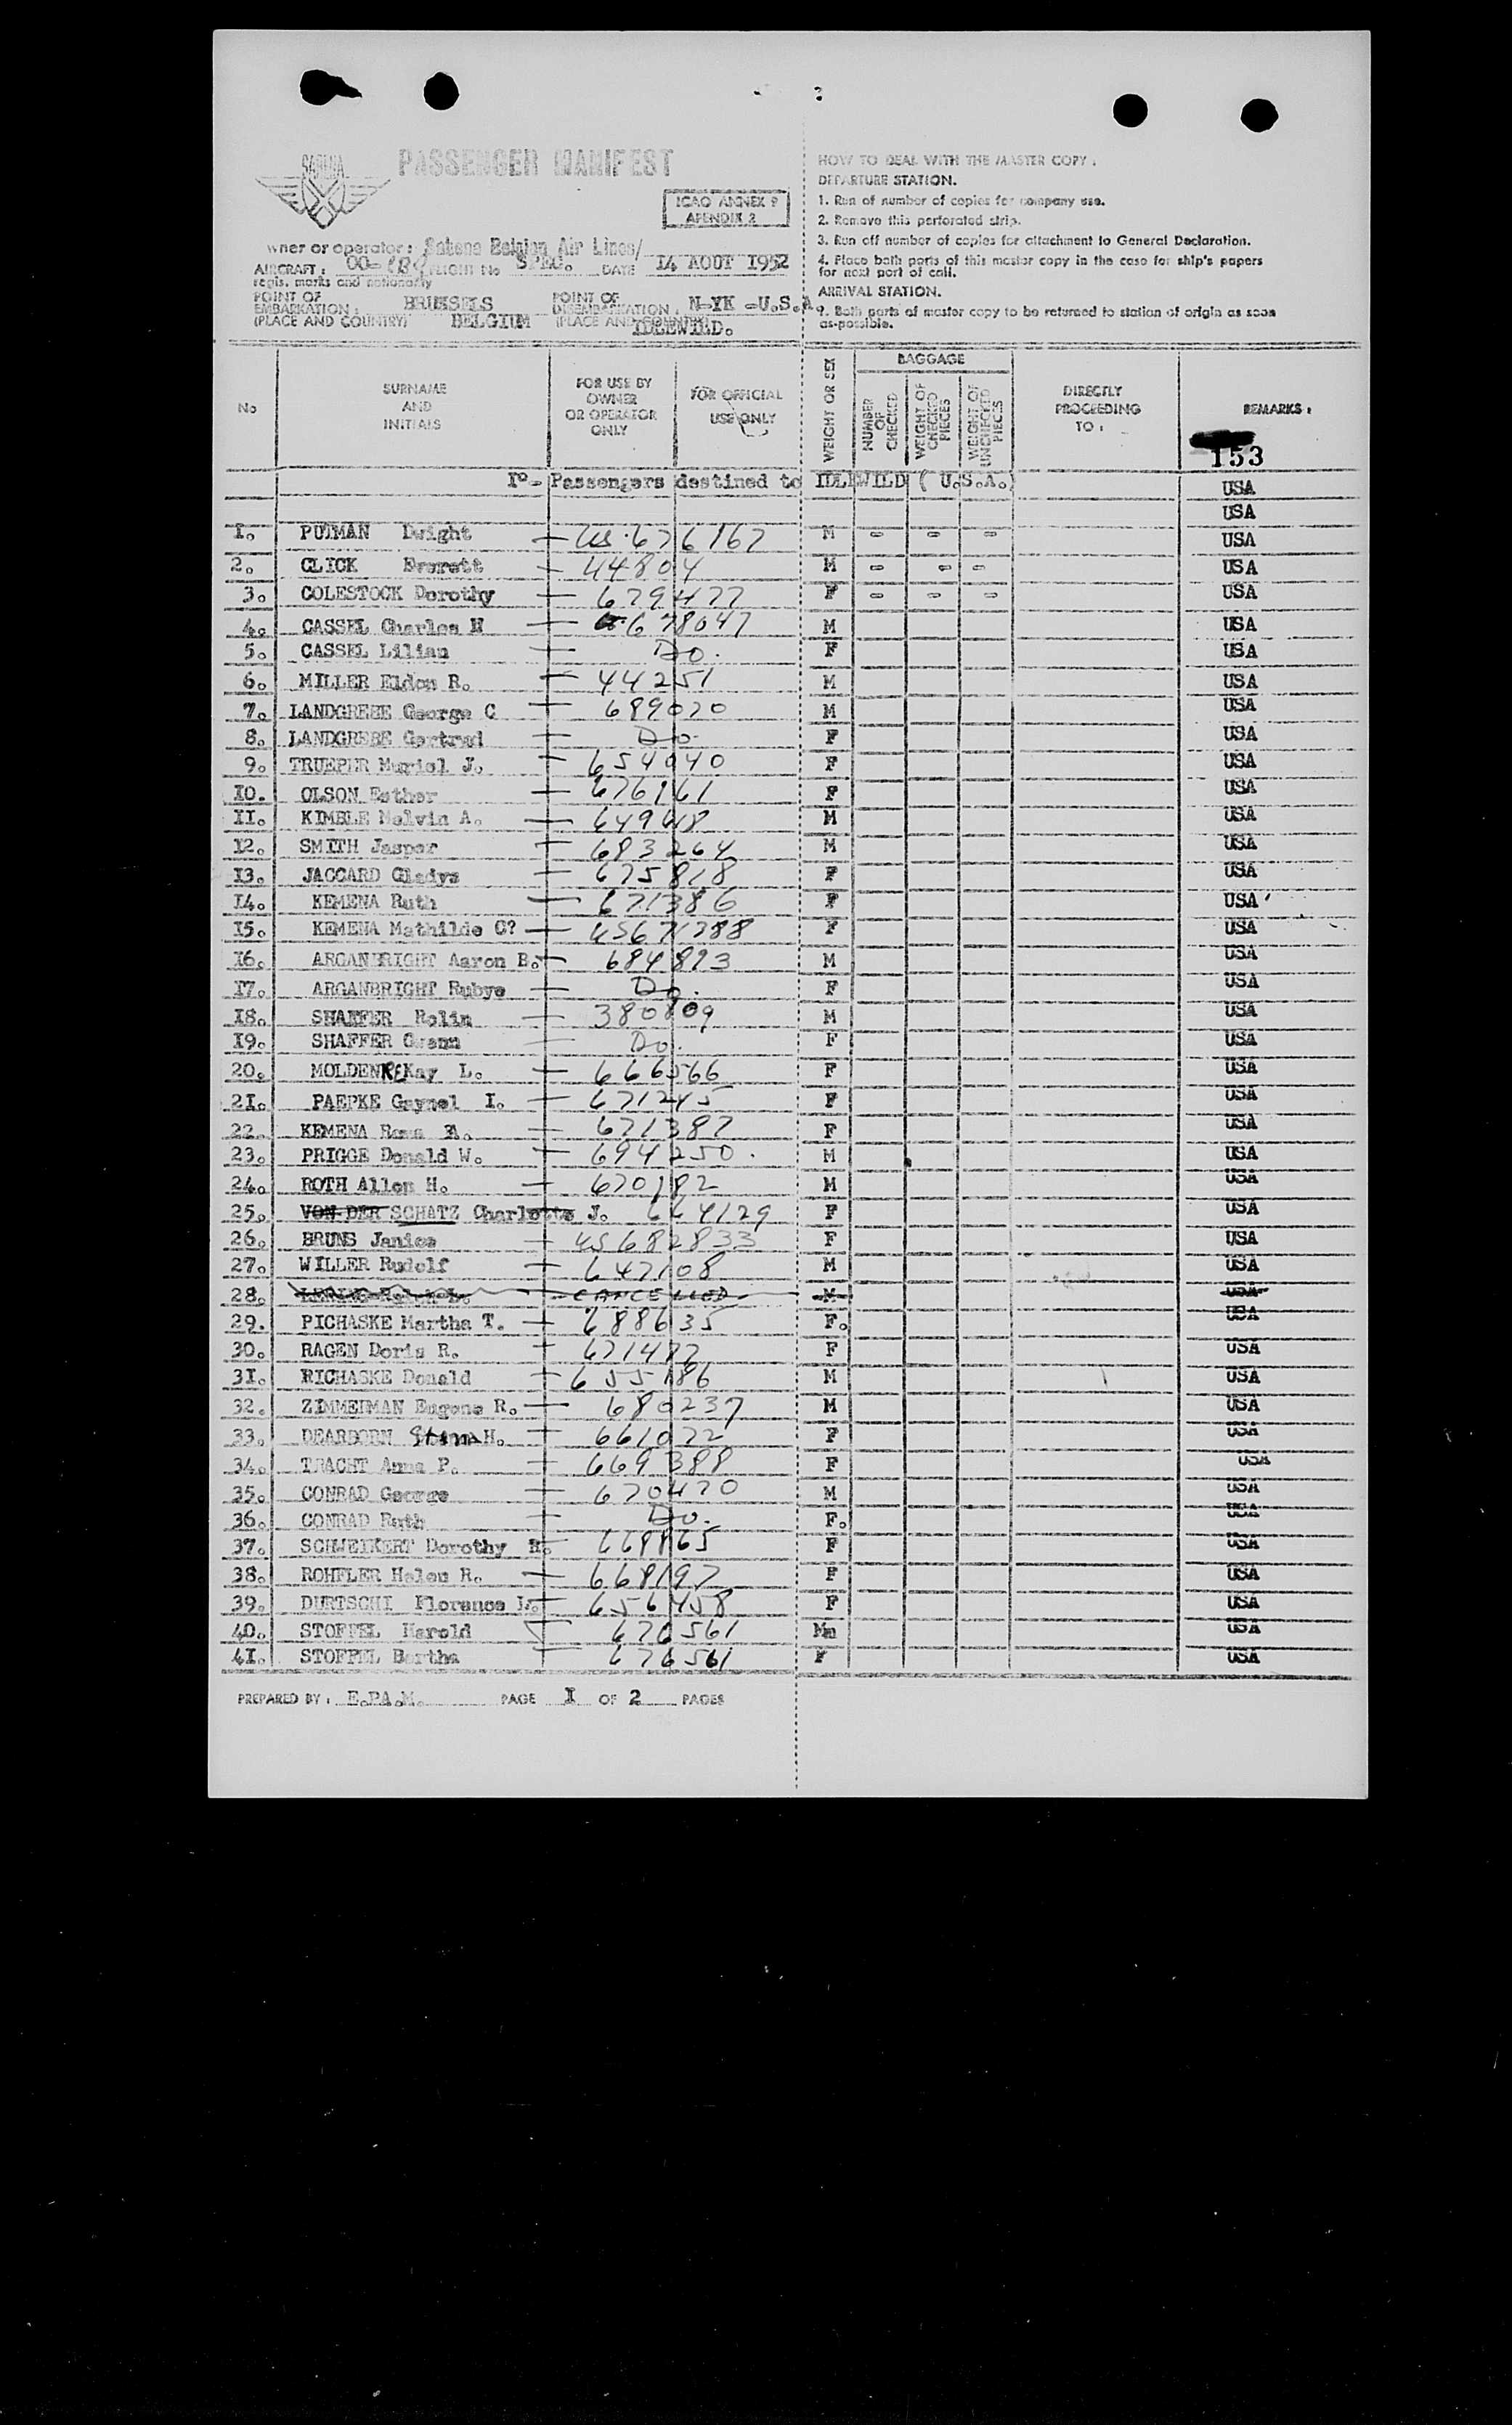 SABENA
PASSENGER MANIFEST
ICAO ANNEX 9
APENDIX 2
wner or operator: Sabena Belgian Air Lines/
AIRCRAFT: OO- FLIGHT No SPEC. DATE 14 AOUT 1952
regis. marks and nationality
POINT OF EMBARKATION: BRUSSELS POINT OF DISEMBARKATION: N-YK -U.S.A.
(PLACE AND COUNTRY) BELGIUM (PLACE AND COUNTRY) IDLEWILD.
HOW TO DEAL WITH THE MASTER COPY:
DEPARTURE STATION.
1. Run of number of copies for company use.
2. Remove this perforated strip.
3. Run off number of copies for attachment to General Declaration.
4. Place both parts of this master copy in the case for ship's papers
for next port of call.
ARRIVAL STATION.
Both parts of master copy to be returned to station of origin as soon
as-possible.
No
SURNAME AND INITIALS
FOR USE BY OWNER OR OPERATOR ONLY
FOR OFFICIAL USE ONLY
WEIGHT OR SEX
BAGGAGE
NUMBER OF CHECKED
WEIGHT OF CHECKED PIECES
WEIGHT OF UNCHECKED PIECES
DIRECTLY PROCEEDING TO:
REMARKS:
153
I°- Passengers destined to IDLEWILD ( U.S.A.) USA
USA
1. PUTMAN Dwight — US.676167 M - - - USA
2. CLICK Everett — 44804 M - - - USA
3. COLESTOCK Dorothy — 679477 F - - - USA
4. CASSEL Charles H — 678047 M USA
5. CASSEL Lilian — Do. F USA
6. MILLER Eldon R. — 44251 M USA
7. LANDGREBE George C — 689020 M USA
8. LANDGREBE Gertrud — Do. F USA
9. TRUEPER Muriel J. — 654040 F USA
10. OLSON Esther — 676161 F USA
11. KIMBLE Melvin A. — M USA
12. SMITH Jasper — 683264 M USA
13. JACCARD Gladys — 675818 F USA
14. KEMENA Ruth — 671386 F USA
15. KEMENA Mathilde C? — US671388 F USA
16. ARGANBRIGHT Aaron B. — 684893 M USA
17. ARGANBRIGHT Rubye — Do. F USA
18. SHAFFER Rolin — 380809 M USA
19. SHAFFER Gwenn — Do. F USA
20. MOLDENKE Kay L. — 666566 F USA
21. PAEPKE Gaynel I. — 671245 F USA
22. KEMENA Rosa A. — 671387 F USA
23. PRIGGE Donald W. — 694250. M USA
24. ROTH Allen H. — 670182 M USA
25. VON DER SCHATZ Charlotte J. 664129 F USA
26. BRUNS Janice — US682833 F USA
27. WILLER Rudolf — 647108 M USA
28. CANCELLED M USA
29. PICHASKE Martha T. — 688635 F. USA
30. RAGEN Doris R. — 671487 F USA
31. RICHASKE Donald — 655186 M USA
32. ZIMMERMAN Eugene R. — 680237 M USA
33. DEARBORN H. — 661072 F USA
34. TRACHT Anna P. — 669388 F USA
35. CONRAD George — 670470 M USA
36. CONRAD Ruth — Do. F. USA
37. SCHWEIKERT Dorothy H. 668865 F USA
38. ROHFLER Helen R. — 668197 F USA
39. DURTSCHI Florence L. — 656458 F USA
40. STOFFEL Harold 676561 M USA
41. STOFFEL Bertha — 676561 F USA
PREPARED BY: E.PA.M. PAGE I OF 2 PAGES